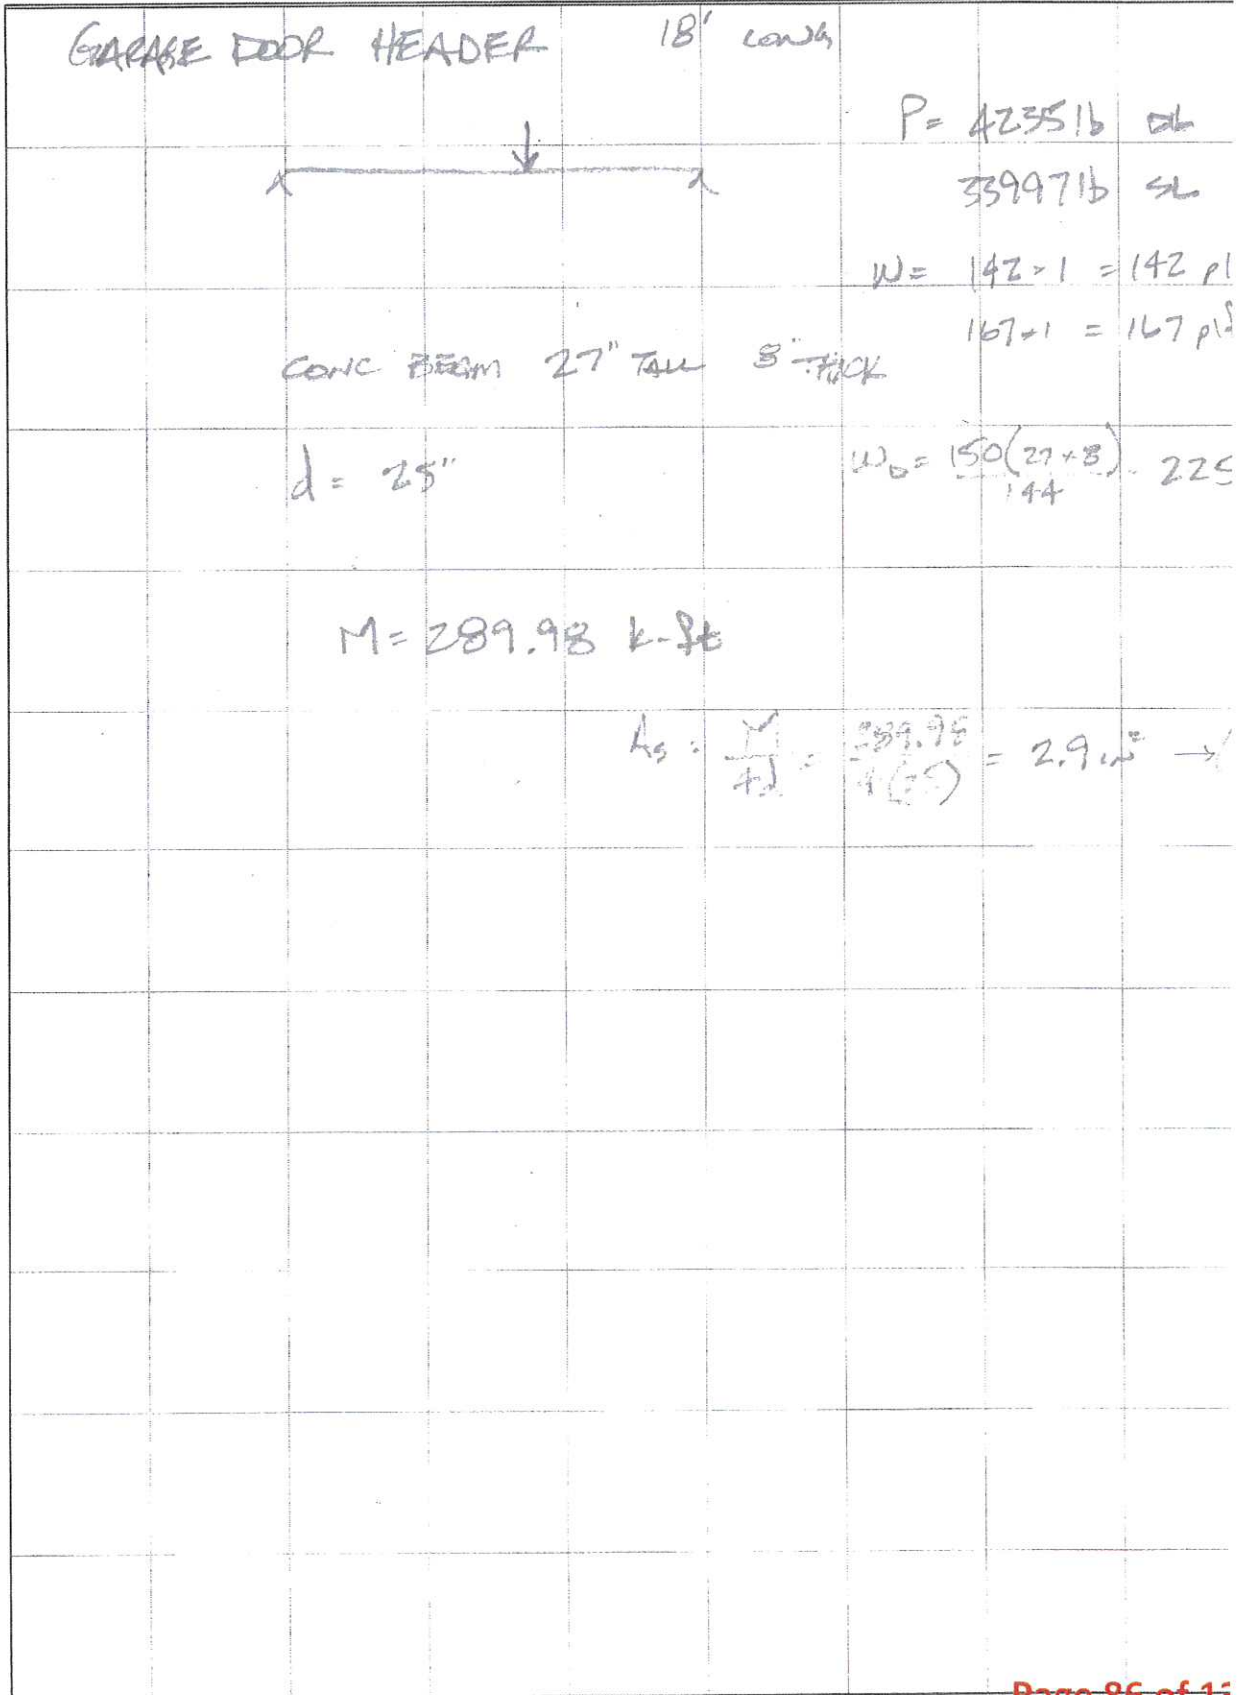 GARAGE DOOR HEADER 18' LONG
P= 4235 lb DL
33997 lb SL
W= 142×1 = 142 pl
167×1 = 167 plf
CONC BEAM 27" TALL 8" THICK
d= 25"
WD= 150(27×8)/144 = 225
M= 289.98 k-ft
As = M/4d = 289.98/4(25) = 2.9 in² →
Page 86 of 13